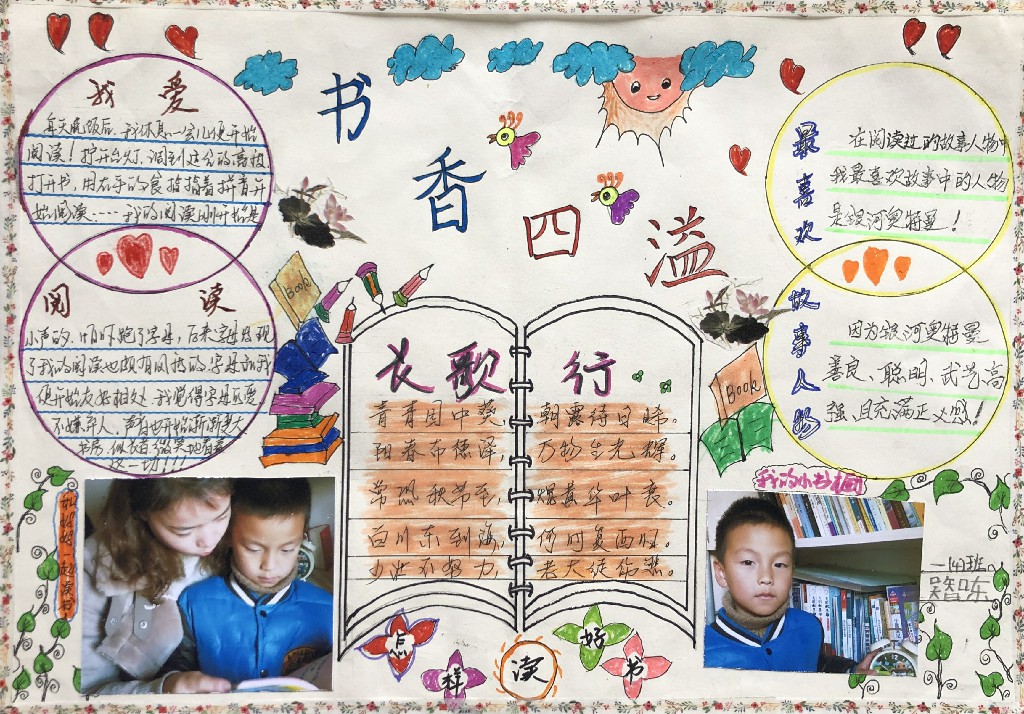 书香四溢
我爱
每天晚饭后,我休息一会儿便开始
阅读!打开台灯,调到适合的高度
打开书,用右手的食指指着拼音开
始阅读----我的阅读刚开始是
阅读
小声的,
了我的阅读也颇有风格的字母和我
便开始友好相处
不嫌弃人,声音也开始渐渐大
微笑地看着
这一切!!!
最喜欢
在阅读过的故事人物中
我最喜欢故事中的人物
是银河奥特曼!
故事人物
因为银河奥特曼
善良、聪明、武艺高
强、且充满正义感!
Book
Book
长歌行
青青园中葵,朝露待日晞。
阳春布德泽,万物生光辉。
常恐秋节至,焜黄华叶衰。
百川东到海,何时复西归。
少壮不努力,老大徒伤悲。
和妈妈一起读书
我的小书橱
一(4)班
怎样读好书